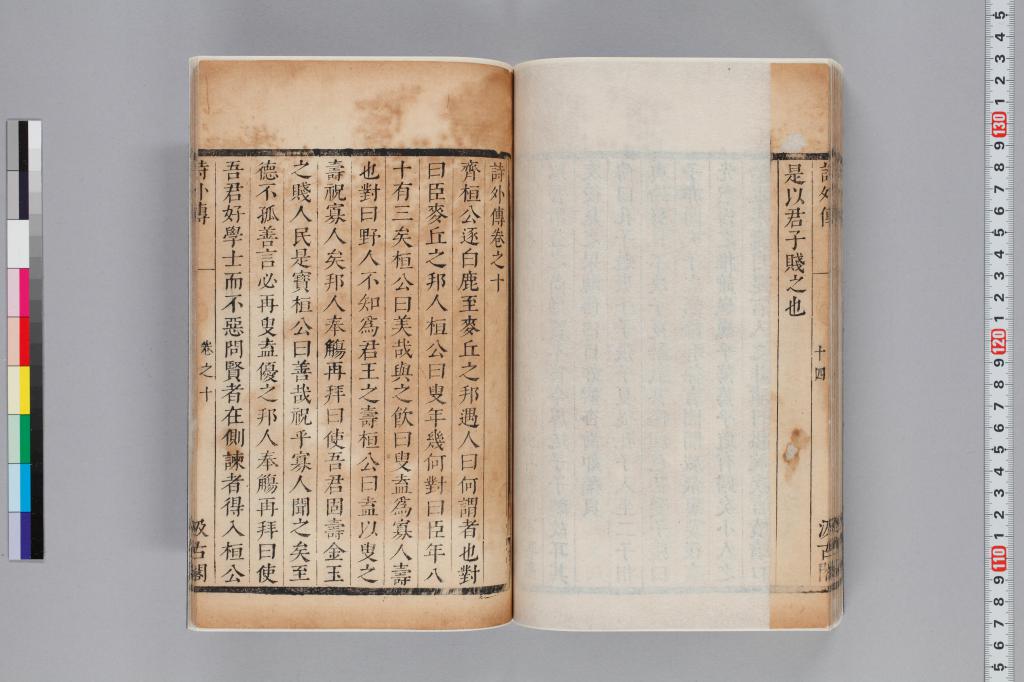 詩外傳
十四
汲古閣
是以君子賤之也
詩外傳卷之十
齊桓公逐白鹿至麥丘之邦遇人曰何謂者也對
曰臣麥丘之邦人桓公曰叟年幾何對曰臣年八
十有三矣桓公曰美哉與之飲曰叟盍爲寡人壽
也對曰野人不知爲君王之壽桓公曰盍以叟之
壽祝寡人矣邦人奉觴再拜曰使吾君固壽金玉
之賤人民是寶桓公曰善哉祝乎寡人聞之矣至
德不孤善言必再叟盍優之邦人奉觴再拜曰使
吾君好學士而不惡問賢者在側諫者得入桓公
詩外傳
一
卷之十
汲古閣
5 4 3 2 1 130 9 8 7 6 5 4 3 2 1 120 9 8 7 6 5 4 3 2 1 110 9 8 7 6 5